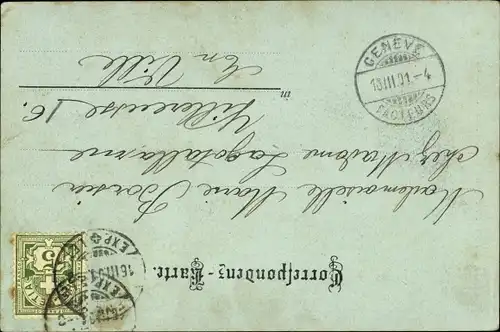 Correspondenz-Karte.
Mademoiselle Marie Borsier
chez Madame Lagotallame
Villereuse 16.
in
En Ville
GENÈVE
13.III.01.-4
FACTEURS
EXP. LET.
16.III.01
5